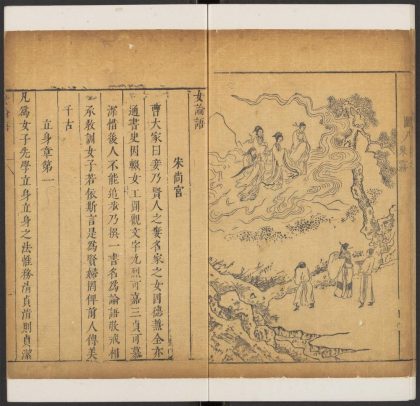 女論語
宋尚宮
曹大家曰妾乃賢人之妻名家之女四德兼全亦
通書史因輟女工閒觀文字九烈可嘉三貞可慕
深惜後人不能追乃撰一書名爲論語敬戒相
承教訓女子若依斯言是爲賢婦罔俾前人傳美
千古
立身章第一
凡爲女子先學立身立身之法惟務清貞清則貞潔